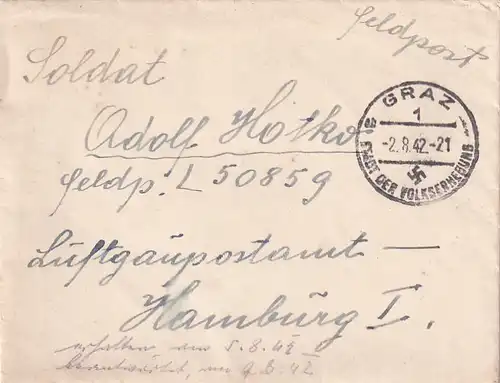 Feldpost
Soldat
Adolf Hotko
Feldp. L 50859
Luftgaupostamt —
Hamburg I.
erhalten am 5.8.42
beantwortet am 9.8.42
GRAZ
1
-2.8.42.-21
STADT DER VOLKSERHEBUNG